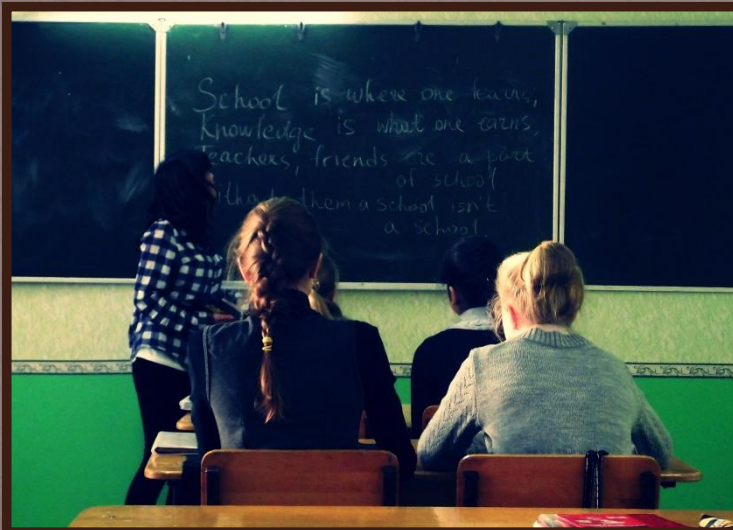 School is where one learns,
Knowledge is what one earns,
Teachers, friends are a part
of school
them a school isn't
a school.